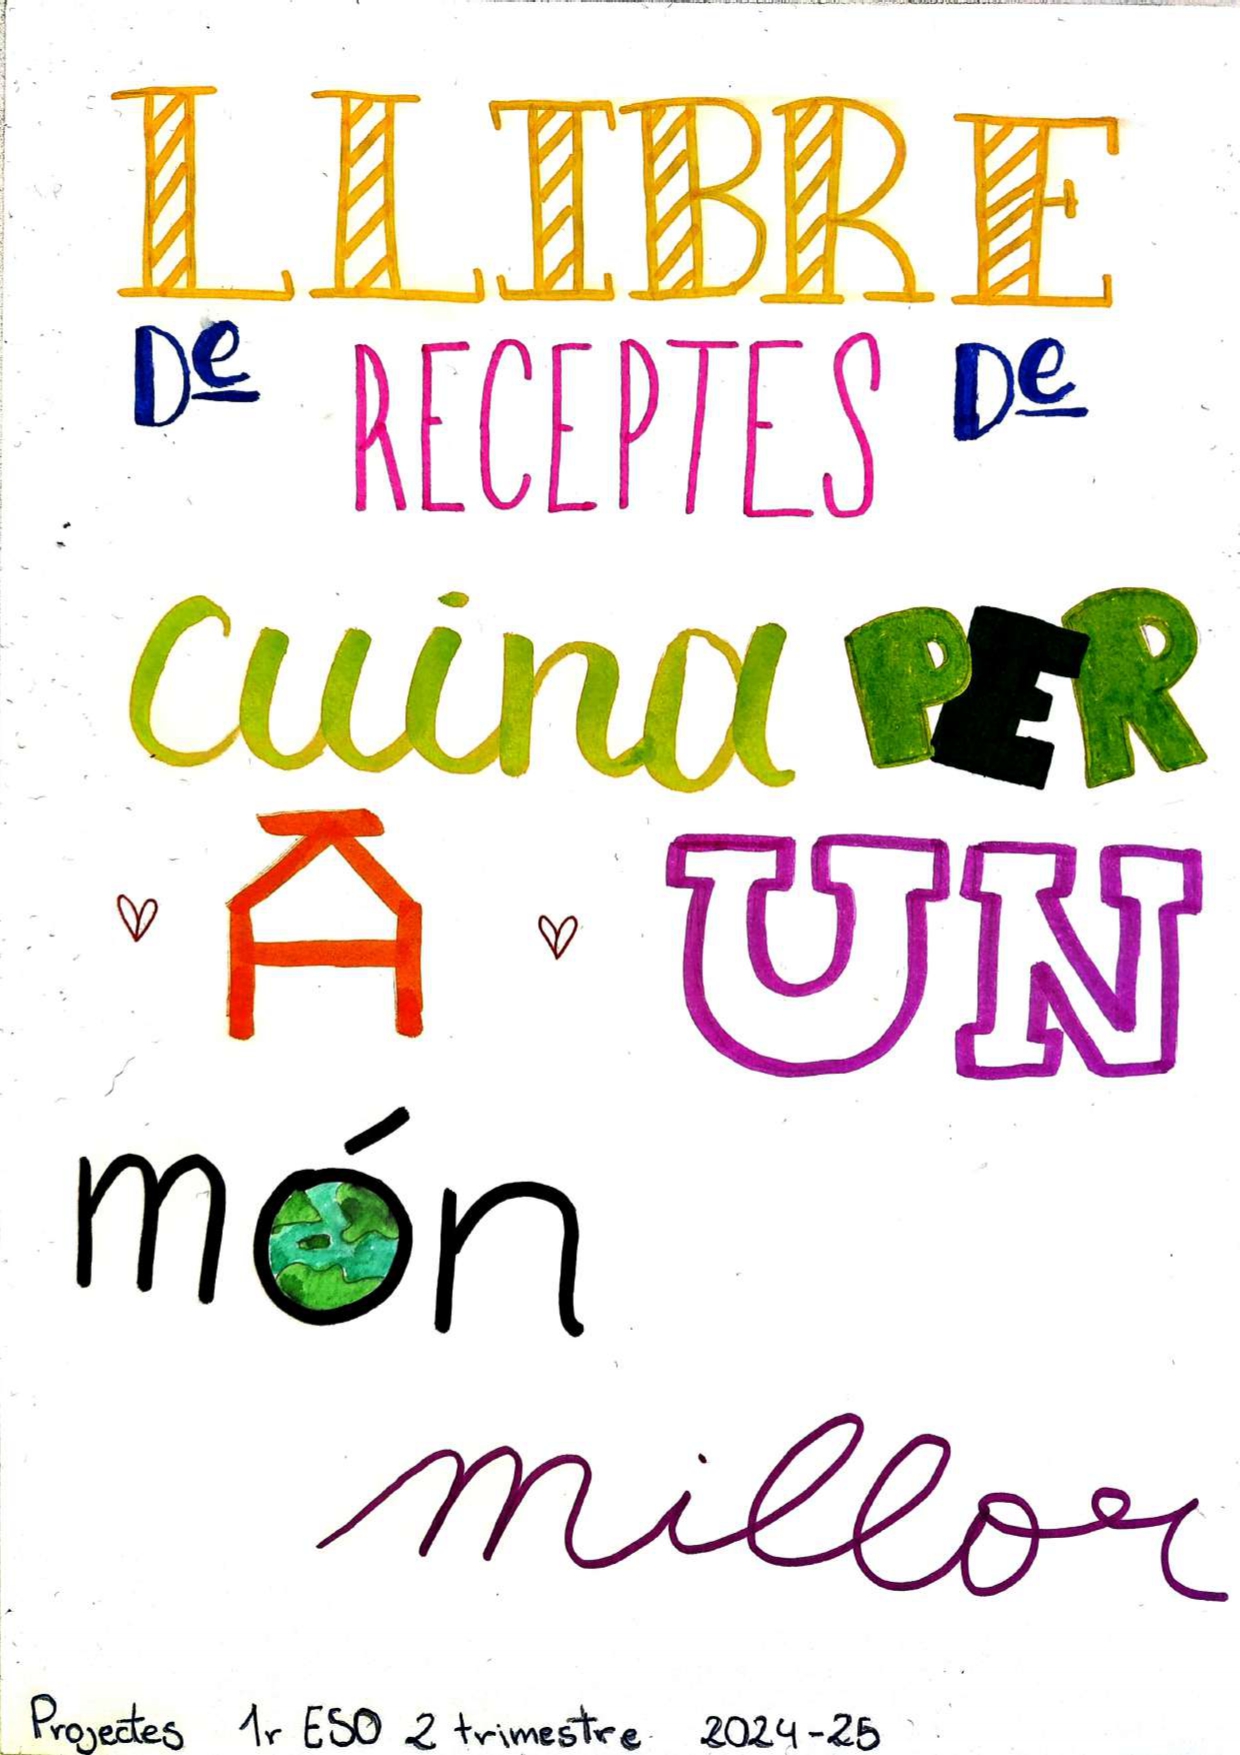 LLIBRE
De RECEPTES De
cuina PER
A UN
món
millor
Projectes 1r ESO 2 trimestre 2024-25